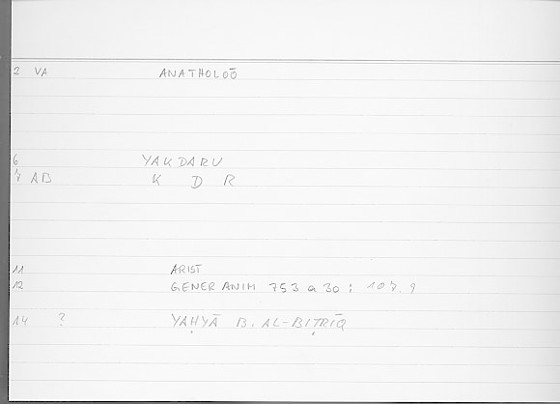 2 VA ANATHOLOŌ
6 YAKDARU
7 AB K D R
11 ARIST
12 GENER ANIM 753 a 30 : 107.9
14 ? YAḤYĀ B. AL-BIṬRĪQ